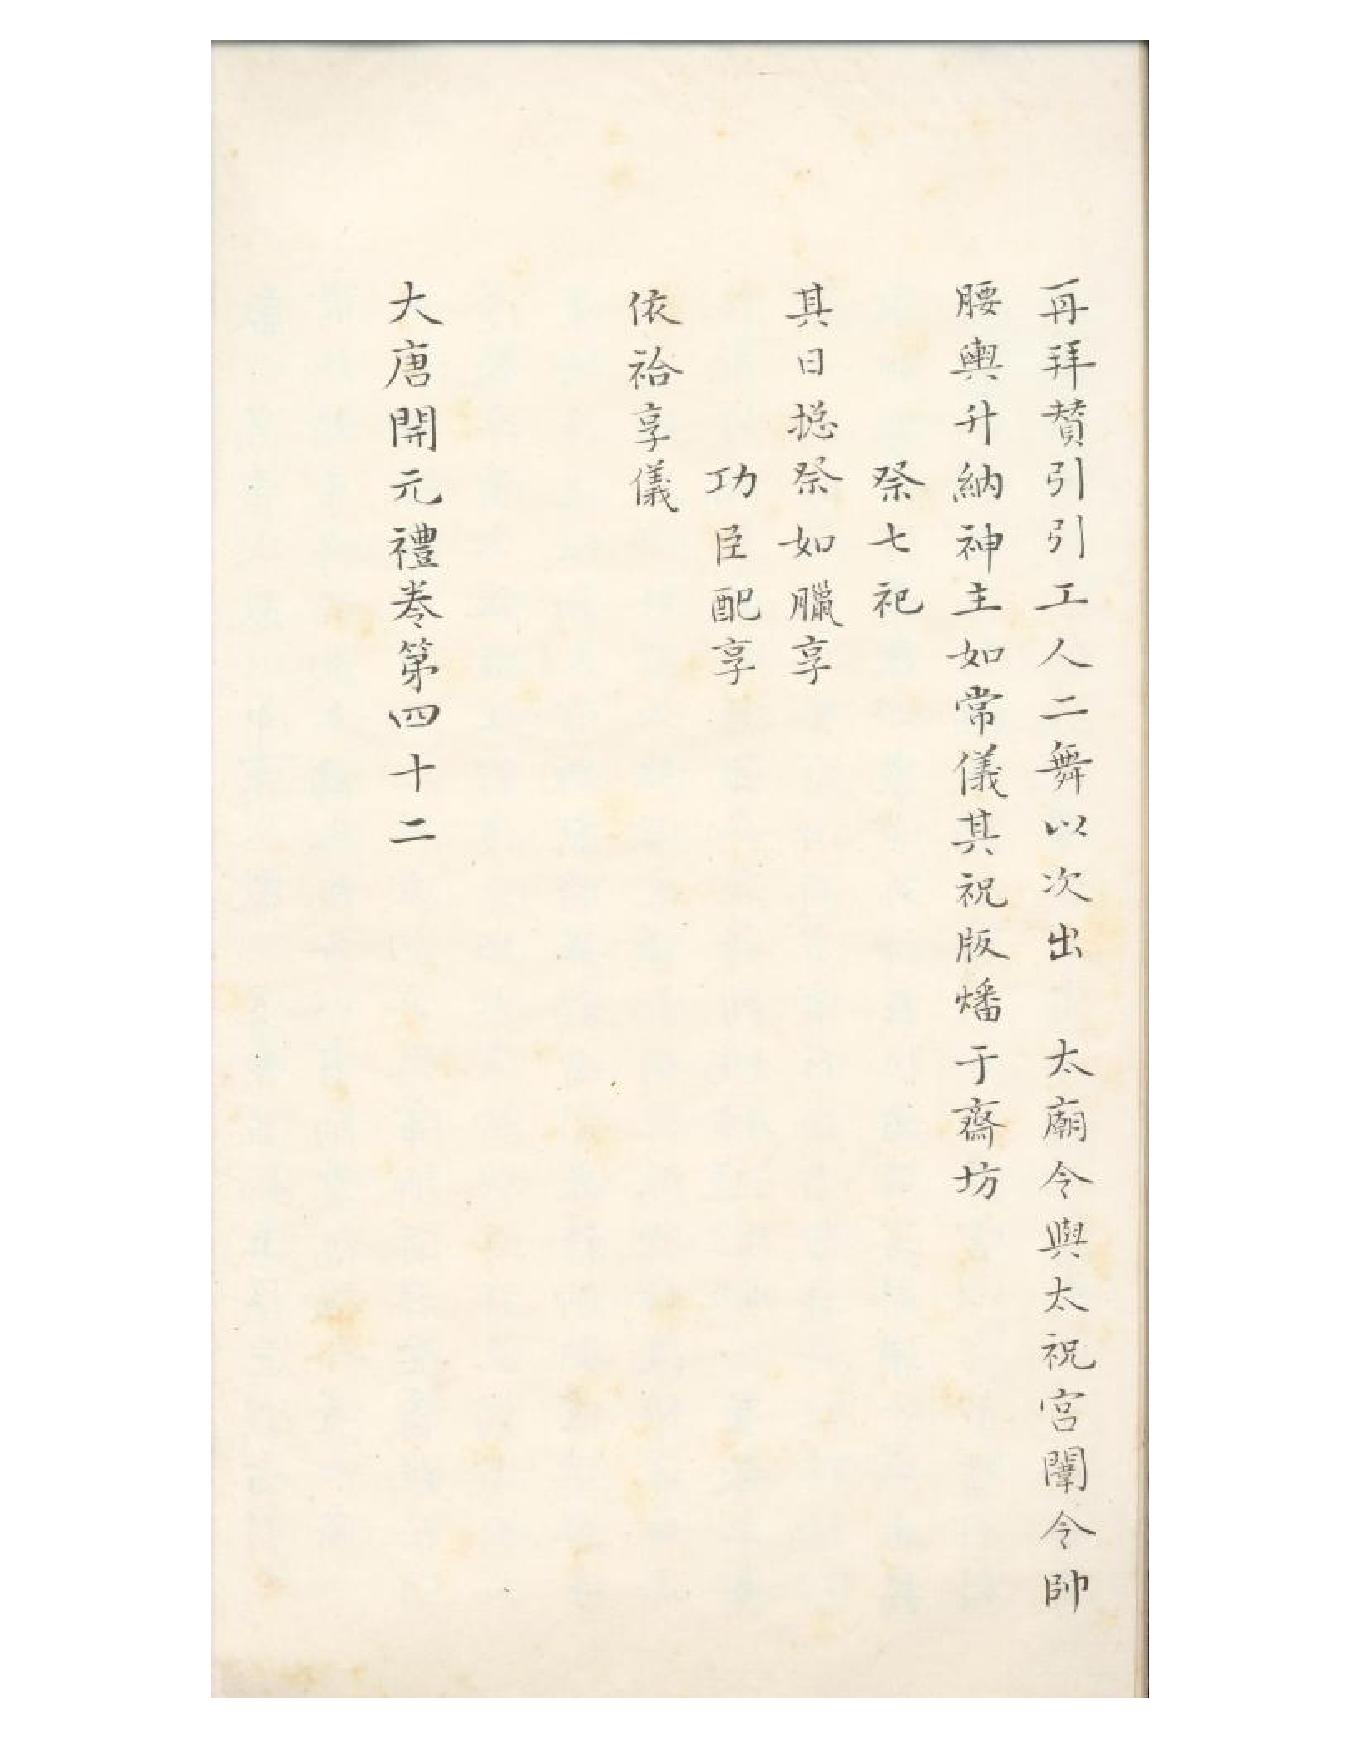 再拜賛引引工人二舞以次出　太廟令與太祝宮闈令帥
腰輿升納神主如常儀其祝版燔于齋坊
祭七祀
其日揔祭如臘享
功臣配享
依祫享儀
大唐開元禮卷第四十二